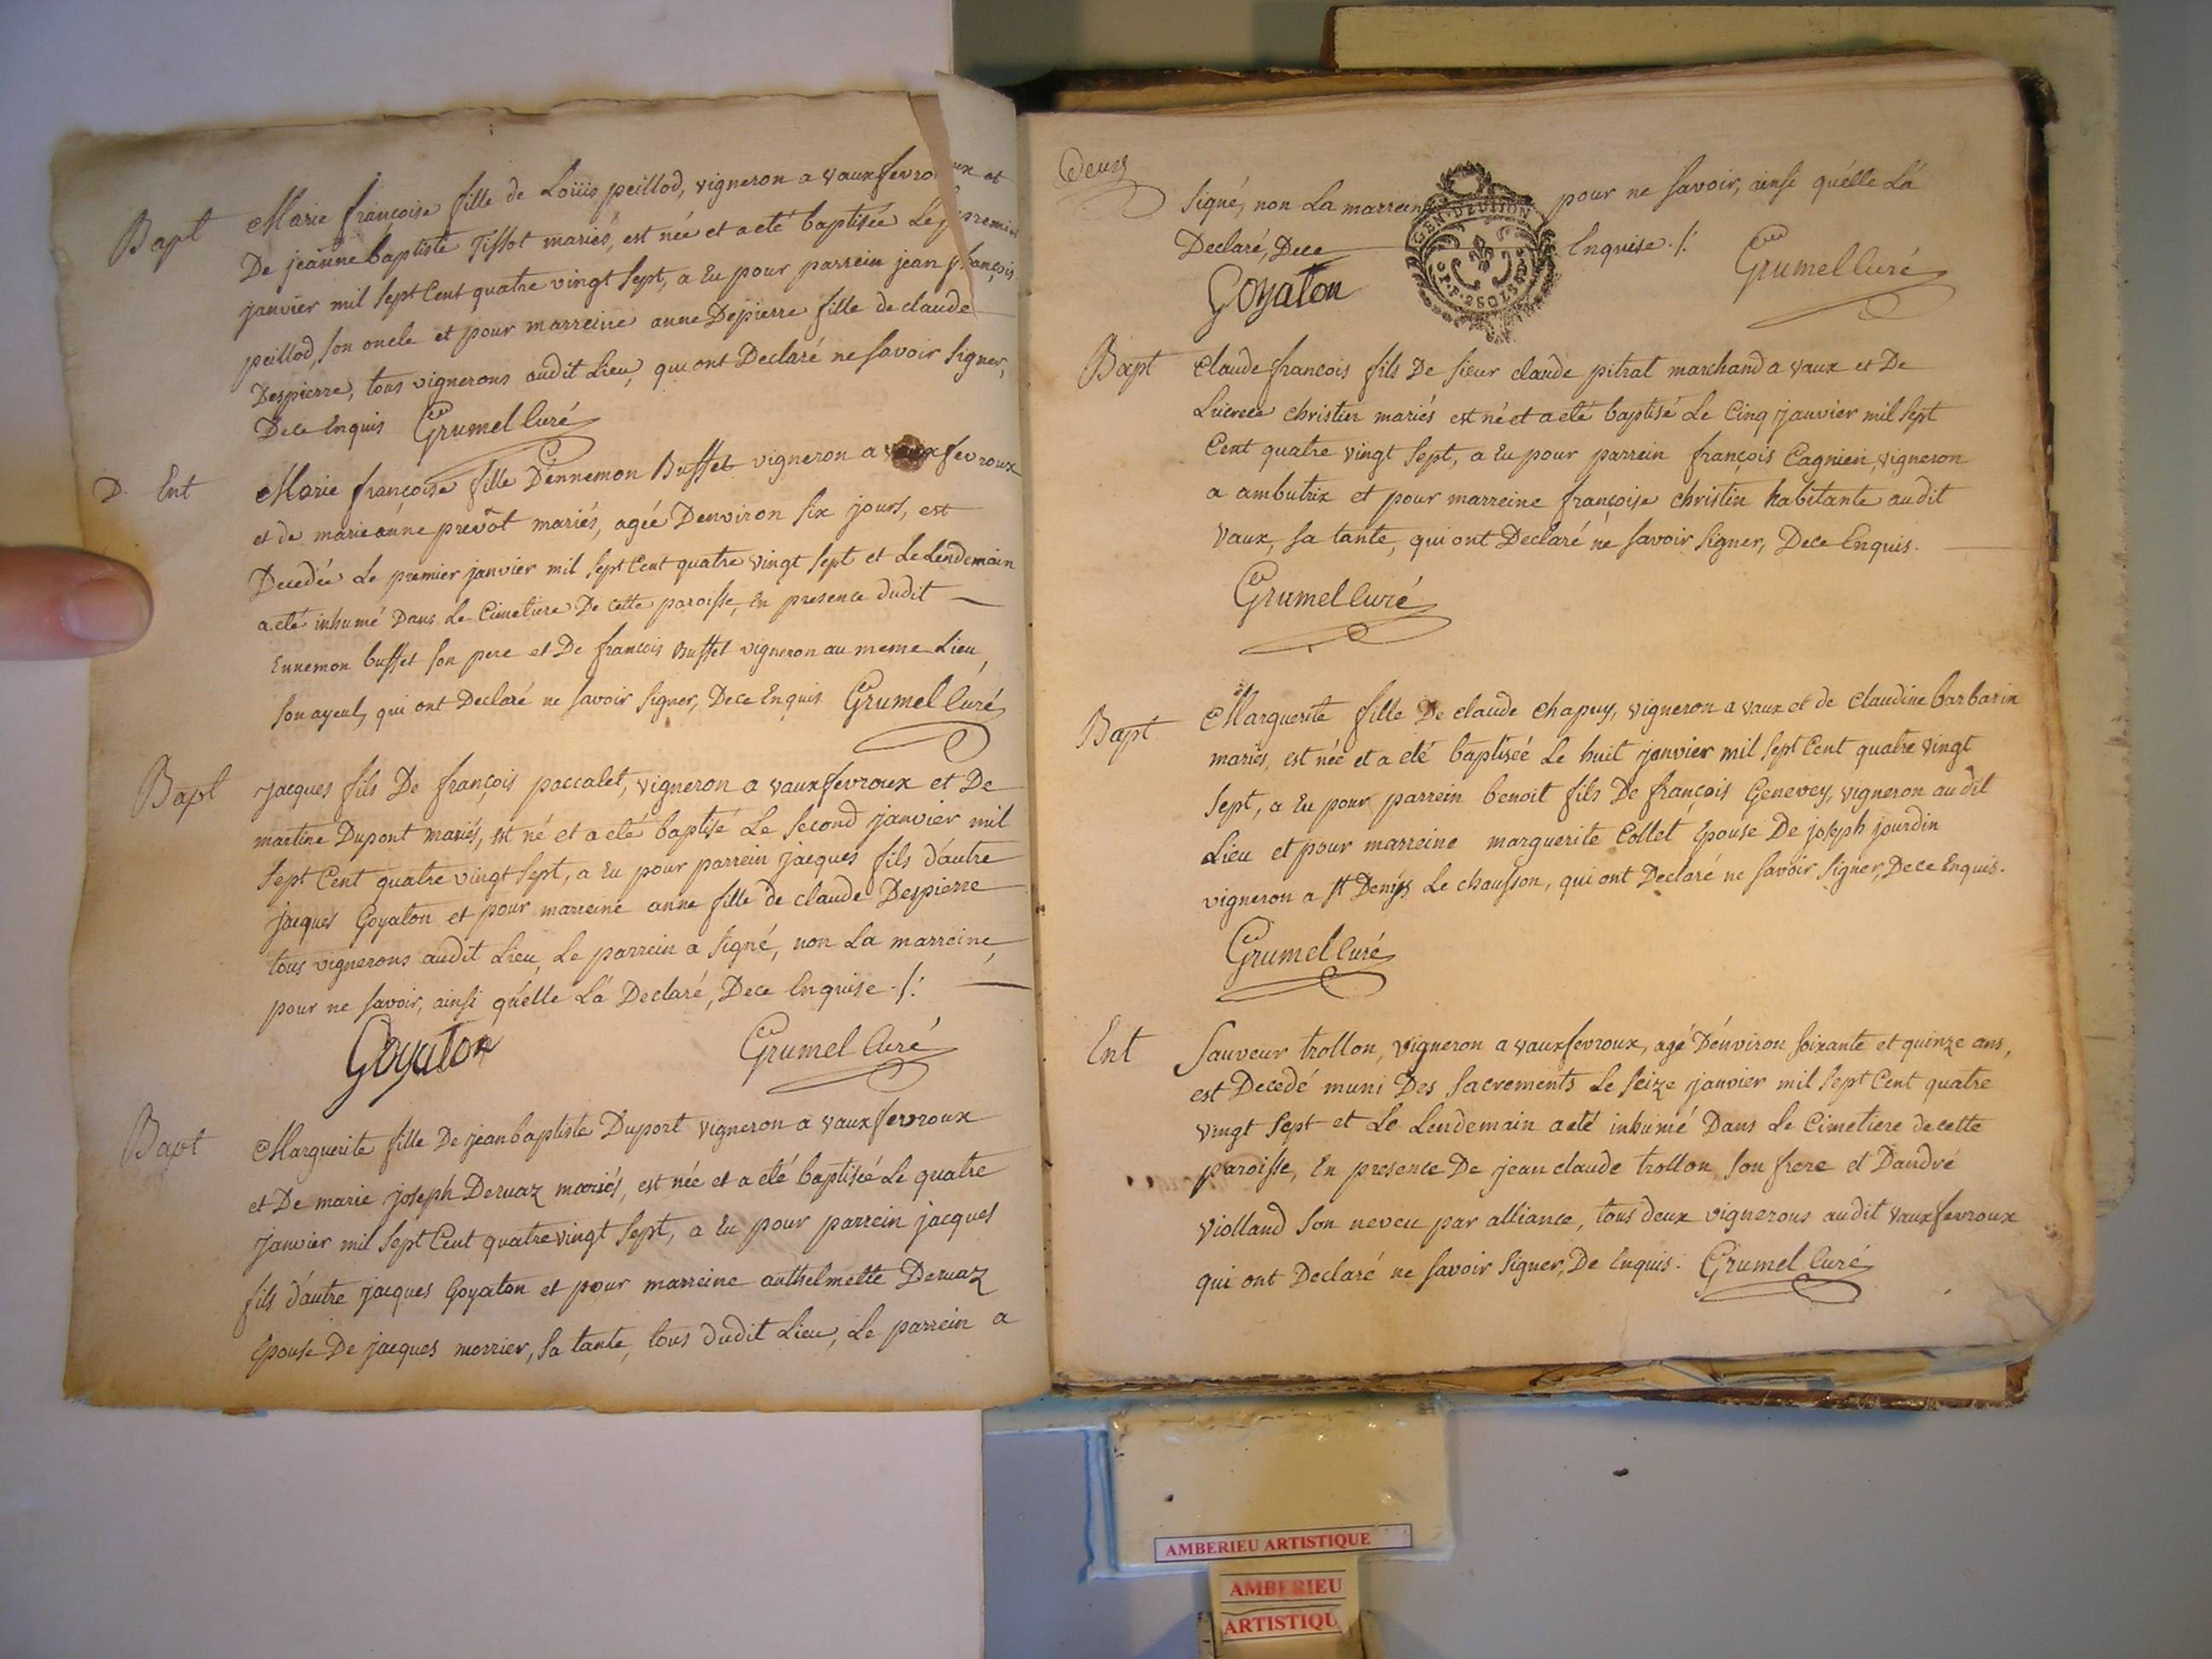 Bapt Marie françoise fille de Loüis peillod, vigneron a vauxfevroux et
De jeanne baptiste Tissot mariés, est née et a eté baptisée Le premier
janvier mil sept Cent quatre vingt sept, a Eu pour parrein jean françois
peillod, son oncle et pour marreine anne Depierre fille de claude
Despierre, tous vignerons audit Lieu, qui ont Declaré ne savoir signer,
Dece Enquis Grumel Curé
D. Ent Marie françoise fille D'ennemon Buffet vigneron a vauxfevroux
et de marie anne prevôt mariés, agée Denviron six jours, est
Decedée Le premier janvier mil sept Cent quatre vingt sept et Le Lendemain
a eté inhumé Dans Le Cimetiere De cette paroisse, En presence dudit
Ennemon buffet son pere et De francois Buffet vigneron au meme Lieu,
son ayeul, qui ont Declaré ne savoir signer, Dece Enquis Grumel Curé
Bapt jacques fils De françois paccalet, vigneron a vauxfevroux et De
martine Dupont mariés, est né et a eté baptisé Le second janvier mil
sept Cent quatre vingt sept, a Eu pour parrein jacques fils d'autre
jacques Goyaton et pour marreine anne fille de claude Despierre
tous vignerons audit Lieu, Le parrein a signé, non La marreine,
pour ne savoir, ainsi qu'elle La Declaré, Dece Enquise ./.
Goyaton Grumel Curé
Bapt Marguerite fille De jean baptiste Duport vigneron a vauxfevroux
et De marie joseph Deruaz mariés, est née et a eté baptisée Le quatre
janvier mil sept Cent quatre vingt sept, a Eu pour parrein jacques
fils d'autre jacques Goyaton et pour marreine anthelmette Deruaz
Epouse De jacques morrier, sa tante, tous dudit Lieu, Le parrein a
Deux
signé, non La marreine pour ne savoir, ainsi qu'elle La
Declaré, Dece Enquise ./.
GEN. DE DIJON
Goyaton Grumel Curé
Bapt Claude francois fils De sieur claude pitrat marchand a vaux et De
Lucrece christin mariés est né et a eté baptisé Le Cinq janvier mil sept
Cent quatre vingt sept, a Eu pour parrein françois Cagnien, vigneron
a ambutrix et pour marreine françoise christin habitante audit
vaux, sa tante, qui ont Declaré ne savoir signer, Dece Enquis.
Grumel Curé
Bapt. Marguerite fille De claude Chapuy, vigneron a vaux et de Claudine barbarin
mariés, est née et a eté baptiseé Le huit janvier mil sept Cent quatre vingt
sept, a Eu pour parrein benoit fils De françois Genevey, vigneron audit
Lieu et pour marreine marguerite Collet Epouse De joseph jourdin
vigneron a st Denys Le chausson, qui ont Declaré ne savoir signer, Dece Enquis.
Grumel Curé
Ent Sauveur trollon, vigneron a vauxfevroux, agé D'environ soixante et quinze ans,
est Decedé muni Des sacrements Le seize janvier mil sept Cent quatre
vingt sept et Le Lendemain a eté inhumé Dans Le Cimetiere de cette
paroisse, En presence De jean claude trollon son frere et D'andré
violland son neveu par alliance, tous deux vignerons audit vauxfevroux
qui ont Declaré ne savoir signer, De Enquis. Grumel Curé
AMBERIEU ARTISTIQUE
AMBERIEU
ARTISTIQU